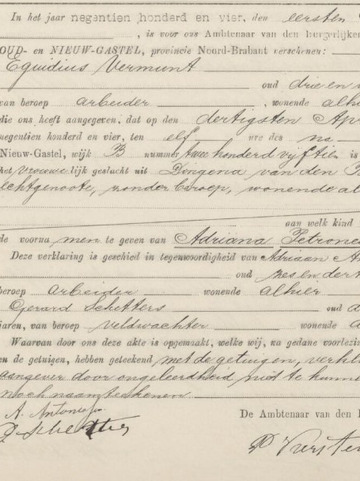 In het jaar negentien honderd en vier, den eersten
, is voor ons Ambtenaar van den burgerlijken
OUD- en NIEUW-GASTEL, provincie Noord-Brabant verschenen:
Egidius Vermunt
oud drie en
van beroep arbeider, wonende alhier
die ons heeft aangegeven, dat op den dertigsten Apr
negentien honderd en vier, ten elf ure des na
Nieuw-Gastel, wijk B nummer twee honderd vijftien is
het vrouwelijk geslacht uit Dingena van den
echtgenoote, zonder beroep, wonende al
aan welk kind
de voornamen te geven van Adriana Petrone
Deze verklaring is geschied in tegenwoordigheid van Adriaan A
oud zes en dert
beroep arbeider wonende alhier
Gerard Schetters oud
jaren, van beroep veldwachter wonende a
Waarvan door ons deze akte is opgemaakt, welke wij, na gedane voorlezing
en de getuigen, hebben geteekend met de getuigen, verkl
aangever door ongeleerdheid niet te kunnen
noch naamteekenen.
A. Antonisse
De Ambtenaar van den
G Schetters